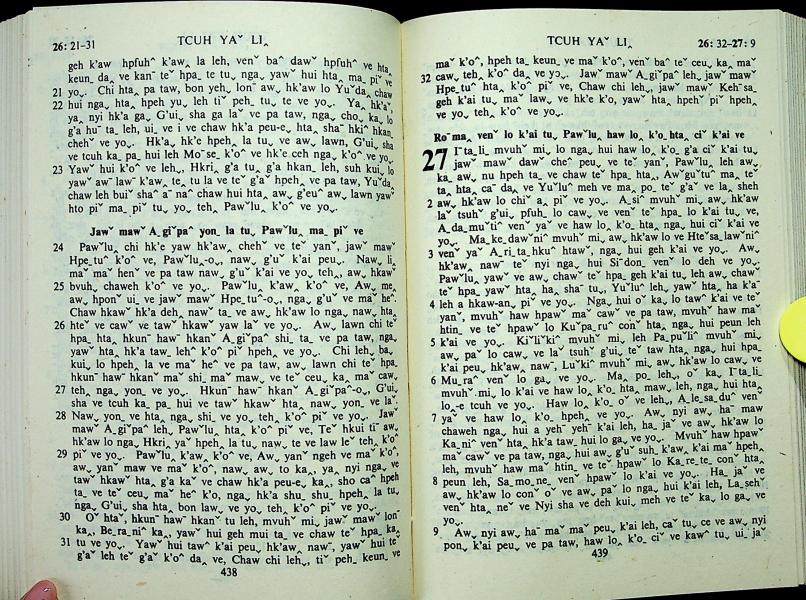 26: 21-31
TCUH YAˇ LI‸
geh k'aw hpfuhˆ k'aw‸ la leh, venˇ baˆ dawˇ hpfuhˆ ve hta‸
keun_ da‸ ve kan¯ teˇ hpa_ te tu‸ nga_ yawˇ hui hta‸ ma_ piˇ ve
21 yo‸. Chi hta‸ pa taw, bon yeh_ lonˆ aw‸ hk'aw lo Yuˇda_ chaw
22 hui nga_ hta‸ hpeh yu‸ leh tiˇ peh_ tu‸ te ve yo‸. Ya‸ hk'aˆ
ya‸ nyi hk'a ga‸ G'ui‸ sha ga laˇ ve pa taw, nga_ cho‸ ka‸ lo
g'a huˉ ta_ leh, ui_ ve i ve chaw hk'a peu-e‸ hta‸ shaˉ hkiˆ hkan_
chehˇ ve yo‸. Hk'a‸ hk'e hpeh‸ la tu ve, aw‸ lawn‸ G'ui‸ sha
ve tcuh ka_ pa_ hui leh Moˉse_ k'oˆ ve hk'e ceh nga_ k'oˆ ve yo‸.
23 Yawˇ hui k'oˆ ve leh‸, Hkri‸ g'a tu‸ g'a hkan_ leh, suh kui‸ lo
yawˇ awˇ lawˉ k'aw‸ te_ tu la ve teˇ g'aˇ hpeh‸ ve pa taw, Yuˇda_
chaw leh buiˇ shaˆ aˉ naˆ chaw hui hta‸ aw‸ g'euˆ aw‸ lawn yawˇ
hto piˇ ma_ piˇ tu‸ yo‸ teh‸ Pawˇlu‸ k'oˆ ve yo‸.
Jawˇ mawˇ A_giˇpaˆ yon_ la tu‸ Pawˇlu‸ ma_ piˇ ve
24 Pawˇlu‸ chi hk'e yaw hk'aw‸ chehˇ ve teˇ yanˇ, jawˇ mawˇ
Hpe_tuˆ k'oˆ ve, Pawˇlu‸-o‸, naw‸ g'uˇ k'ai peu‸. Naw‸ li‸
maˇ maˇ henˇ ve pa taw naw‸ g'uˇ k'ai ve yo‸ teh‸, aw‸ hkawˆ
25 bvuh_ chaweh k'oˆ ve yo‸. Pawˇlu‸ k'aw‸ k'oˆ ve, Aw‸ me‸
aw‸ hpon_ ui_ ve jawˇ mawˇ Hpe_tuˆ-o‸, nga_ g'uˇ ve maˇ heˆ.
Chaw hkawˇ hk'a deh_ nawˇ ta‸ ve aw‸ hk'aw lo nga_ naw‸ hta‸
26 hteˇ ve cawˇ ve tawˇ hkawˇ yaw laˇ ve yo‸. Aw‸ lawn chi teˇ
hpa_ hta‸ hkunˉ hawˉ hkanˆ A_giˇpaˆ shi_ ta‸ ve pa taw, nga_
yawˇ hta‸ hk'a taw_ lehˆ k'oˆ piˇ hpeh‸ ve yo‸. Chi leh_ ba‸
kui‸ lo hpeh‸ la ve maˇ heˆ ve pa taw, aw‸ lawn chi teˇ hpa_
hkunˉ hawˉ hkanˆ maˇ shi_ maˇ maw‸ ve teˇ ceu‸ ka‸ maˇ caw‸
27 teh‸ nga_ yon_ ve yo‸. Hkunˉ hawˉ hkanˆ A_giˇpaˆ-o‸, G'ui‸
sha ve tcuh ka_ pa_ hui ve tawˇ hkawˇ hta‸ naw‸ yon_ ve la‸.
28 Naw‸ yon_ ve hta‸ nga_ shi_ ve yo‸ teh‸ k'oˆ piˇ ve yo‸. Jawˇ
mawˇ A_giˇpaˆ leh‸ Pawˇlu‸ hta‸ k'oˆ piˇ ve, Teˇ hkui tiˉ aw‸
hk'aw lo nga_ Hkri‸ yaˇ hpeh‸ la tu‸ naw‸ te ve law leˇ teh‸ k'oˆ
29 piˇ ve yo‸. Pawˇlu‸ k'aw‸ k'oˆ ve, Aw‸ yanˇ ngeh ve maˇ k'oˆ,
aw‸ yanˇ maw ve maˇ k'oˆ, naw‸ aw‸ to ka‸, ya‸ nyi nga_ ve
tawˇ hkawˇ hta‸ g'a kaˇ ve chaw hk'a peu-e‸ ka‸, sho caˆ hpeh
ta‸ ve teˇ ceu‸ maˇ heˆ k'o‸ nga_ hk'a shu_ shu_ hpeh‸ la tu‸
nga_ G'ui‸ sha hta‸ bon law‸ ve yo‸ teh‸ k'oˆ piˇ ve yo‸.
30 Oˇ htaˆ, hkunˉ hawˉ hkanˆ tu leh, mvuhˇ mi‸ jawˇ mawˇ lonˆ
ka‸, Be_ra_niˆ ka‸, yawˇ hui geh mui ta‸ ve chaw teˇ hpa_ ka‸
31 tu ve yo‸. Yawˇ hui tawˆ k'ai peu‸ hk'aw‸ nawˉ, yawˇ hui teˇ
g'aˇ leh teˇ g'aˇ k'oˆ da‸ ve, Chaw chi leh‸ tiˇ peh_ keun_ ve
438
TCUH YAˇ LI‸
26: 32-27: 9
maˇ k'oˆ, hpeh ta_ keun_ ve maˇ k'oˆ, venˇ baˆ teˇ ceu‸ ka‸ maˇ
32 caw‸ teh‸ k'oˆ da‸ ve yo‸. Jawˇ mawˇ A_giˇpa‸ leh‸ jawˇ mawˇ
Hpe_tuˆ hta‸ k'oˆ piˇ ve, Chaw chi leh‸ jawˇ mawˇ Kehˉsa_
geh k'ai tu‸ maˇ law‸ ve hk'e k'o‸ yawˇ hta‸ hpehˇ piˇ hpeh‸
ve yo‸ teh‸ k'oˆ ve yo‸.
Roˉma‸ venˇ lo k'ai tu‸ Pawˇlu‸ haw lo‸ k'o_ hta‸ ciˇ k'ai ve
27 Iˉta_li‸ mvuhˇ mi‸ lo‸ nga_ hui haw lo‸ k'o_ g'a ciˇ k'ai tu‸
jawˇ mawˇ dawˇ cheˆ peu‸ ve teˇ yanˇ, Pawˇlu‸ leh aw‸
ka‸ aw‸ nu hpeh ta_ ve chaw teˇ hpa_ hta‸, Awˇguˇtu_ maˉ teˇ
ta‸ hta‸ caˉ da‸ ve Yuˇluˆ meh ve ma‸ po_ teˇ g'aˇ ve la‸ sheh
2 aw‸ hk'aw lo chiˆ a‸ piˇ ve yo‸. A_siˆ mvuhˇ mi‸ aw‸ hk'aw
laˇ tsuhˇ g'ui‸ pfuh_ lo caw‸ ve venˇ teˇ hpa_ lo k'ai tu‸ ve,
A_da_muˇtiˆ venˇ yaˇ ve haw lo‸ k'o_ hta‸ nga_ hui ciˇ k'ai ve
yo‸. Ma_ke_dawˇniˆ mvuhˇ mi‸ aw‸ hk'aw lo ve Hteˇsa_lawˇniˆ
3 venˇ yaˇ A_ri_ta_hkuˆ htawˇ, nga_ hui geh k'ai ve yo‸. Aw‸
hk'aw‸ nawˉ teˇ nyi nga_ hui Siˇdon_ venˇ lo deh ve yo‸.
Pawˇlu‸ yawˇ ve aw‸ chawˇ teˇ hpa_ geh k'ai tu‸ leh aw‸ chawˇ
teˇ hpa_ yawˇ hta‸ ha_ shaˉ tu‸ Yuˇlu‸ leh‸ yawˇ hta‸ ha k'aˉ
4 leh a hkaw-an‸ piˇ ve yo‸. Nga_ hui oˇ ka‸ lo tawˆ k'ai ve teˇ
yanˇ, mvuhˇ haw hpawˇ maˇ cawˇ ve pa taw, mvuhˇ haw maˇ
htin_ ve teˇ hpawˇ lo Kuˇpa_ruˆ conˇ hta‸ nga_ hui peun leh
5 k'ai ve yo‸. Kiˇliˇkiˆ mvuhˇ mi‸ leh Pa_puˇliˆ mvuhˇ mi‸
aw‸ paˇ lo caw‸ ve laˇ tsuhˇ g'ui‸ teˇ taw hta‸ nga_ hui hpa_
k'ai peu‸ hk'aw‸ nawˉ, Luˇkiˆ mvuhˇ mi‸ aw‸ hk'aw lo caw‸ ve
6 Mu_raˆ venˇ lo ga‸ ve yo‸. Ma‸ po_ leh‸ oˇ ka‸ Iˉta_li‸
mvuhˇ mi‸ lo k'ai ve haw lo‸ k'o_ hta‸ maw‸ leh, nga_ hui hta‸
lo‸-e tcuh ve yo‸. Haw lo‸ k'o_ oˇ ve leh‸ A_le_sa_duˆ venˇ
7 yaˇ ve haw lo‸ k'o_ hpeh‸ ve yo‸. Aw‸ nyi aw‸ haˉ maw
chaweh nga_ hui a yehˉ yehˉ k'ai leh, ha_ jaˇ ve aw‸ hk'aw lo
Ka_niˆ venˇ hta‸ hk'a taw_ hui lo ga ve yo‸. Mvuhˇ haw hpawˇ
maˇ cawˇ ve pa taw, nga_ hui aw‸ g'uˇ suh_ k'aw‸ k'ai maˇ hpeh‸
leh, mvuhˇ haw maˇ htin_ ve teˇ hpawˇ lo Ka_re_te_ conˇ hta‸
8 peun leh, Sa_mo_ne_ venˇ hpawˇ lo k'ai ve yo‸. Ha_ jaˇ ve
aw‸ hk'aw lo conˇ oˇ ve aw‸ paˇ lo nga_ hui k'ai leh, La_sehˆ
venˇ hta‸ neˇ ve Nyi sha ve deh kui‸ meh ve teˇ ka‸ lo ga‸ ve
yo‸.
9 Aw‸ nyi aw‸ haˉ maˇ maˇ peu‸ k'ai leh, caˇ tu‸ ce ve aw‸ nyi
pon‸ k'ai peu‸ ve pa taw, haw lo‸ k'o_ ciˇ ve kawˆ tu‸ ui_ jaˇ
439